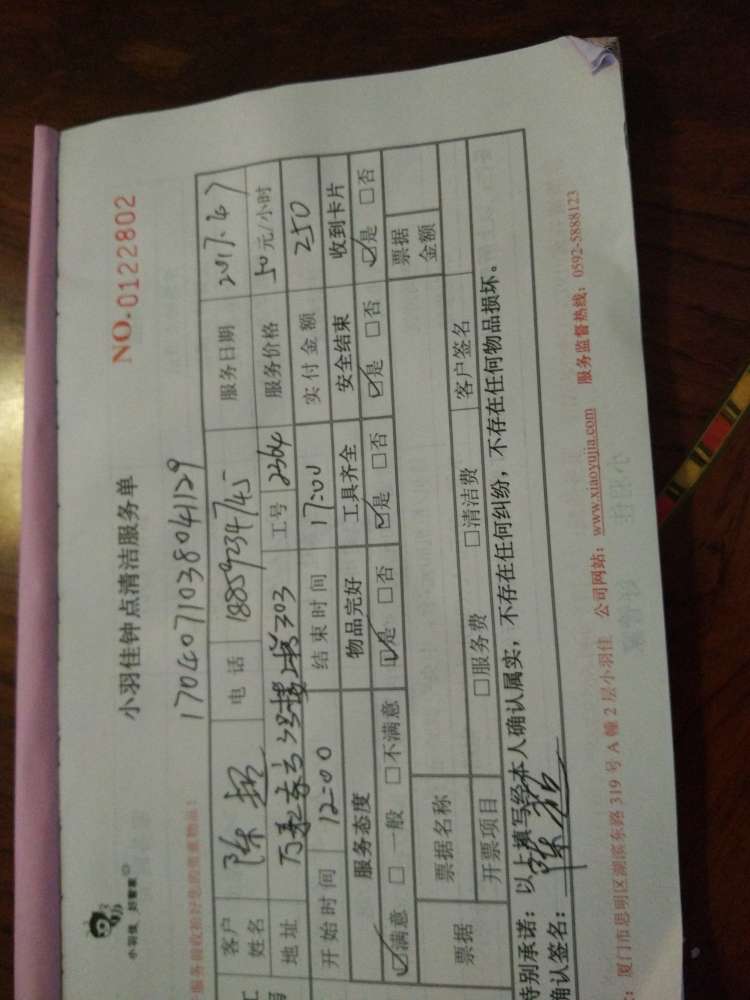 小羽佳 好管家
小羽佳钟点清洁服务单
NO.0122802
17040710380 41129
服务前收拾好您的贵重物品!
客户姓名 陈超 电话 服务日期 2017.4.7
地址 303 工号 2364 服务价格 50元/小时
开始时间 12:00 结束时间 17:00 实付金额 250
服务态度 物品完好 工具齐全 安全结束 收到卡片
☑满意 □一般 □不满意 ☑是 □否 ☑是 □否 ☑是 □否 ☑是 □否
票据 票据名称 票据金额
开票项目 □服务费 □清洁费 客户签名
特别承诺:以上填写经本人确认属实,不存在任何纠纷,不存在任何物品损坏。
确认签名:陈超
:厦门市思明区湖滨东路 319 号 A 幢 2 层小羽佳 公司网站:www.xiaoyujia.com 服务监督热线:0592-5888123